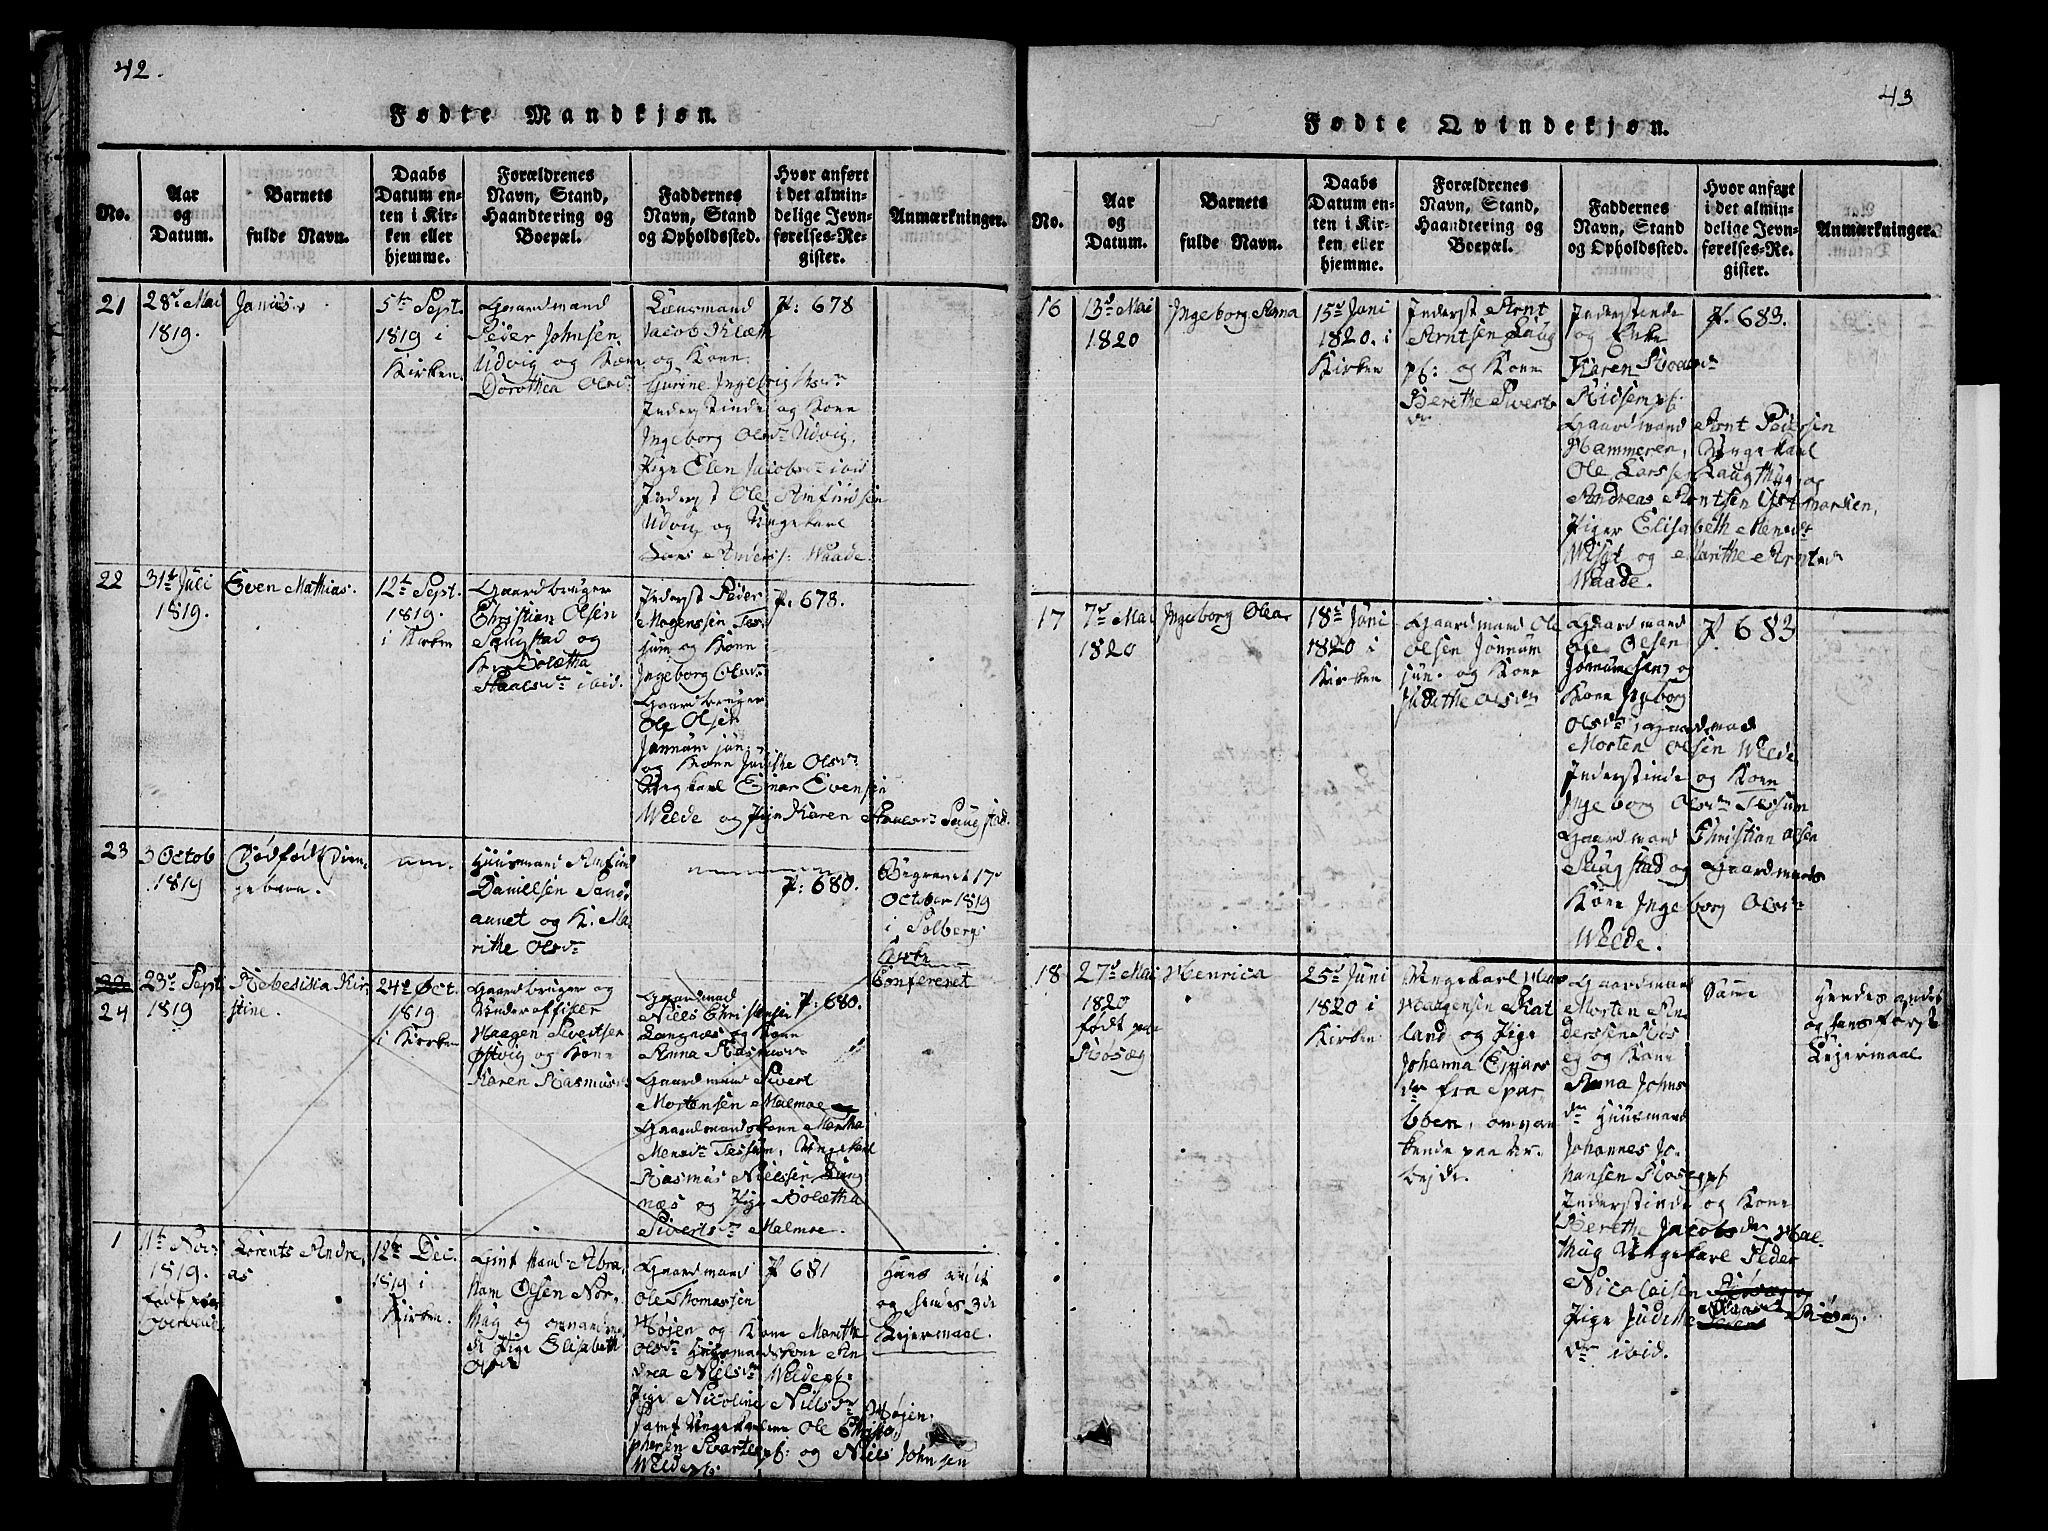 42.
Fødte Mandkjøn.
No.
Aar og Datum.
Barnets fulde Navn.
Daabs Datum enten i Kirken eller hjemme.
Forældrenes Navn, Stand, Haandtering og Boepæl.
Faddernes Navn, Stand og Opholdssted.
Hvor anført i det almindelige Jevnførelses-Register.
Anmærkninger.
21
28de Mai
1819.
Janus.
5te Sept.
1819 i
Kirken.
Gaardmand
Peder Johnsen
Udvig og Kone
Dorothea Olsdr
Lensmand
Jacob Klæth
og Kone
Gurine Ingebrigtsdr
Inderstinde og Kone
Ingeborg Olsdr Udvig,
Pige Elen Jacobsdr ibid
Inderst Ole Amfindsen
Udvig og Ungekarl
Lars Anders: Waade.
P: 678
22
31te Juli
1819.
Even Mathias.
12te Sept.
1819.
i Kirken
Gaardbruger
Christian Olsen
Saugstad og
K. Boletha
Staalesdr ibid.
Inderst Peder
Mogenssen Tes-
sum og Kone
Ingeborg Olsdr
Gaardbruger
Ole Olsen
Jønnum jun:
og Kone Judithe Olsdr
Ungkarl Einar Evensen
Welde og Pige Karen Staalesdr Saugstad.
P. 678.
23
3 Octob
1819
Dødfød Dren-
gebarn.
Huusmand Amfind
Daniellsen Sands
aunet og K. Ma
rithe Olsdr
P: 680.
Begravet 17de
October 1819
i Solberg
Kirke
24
23de Sept
1819
Rebesisia Kir-
stine.
24de Oct.
1819
i Kirken
Gaardbruger og
Underofficer
Haagen Sivertsen
Østvig og Kone
Karen Rasmusdr
Gaardmand
Niels Christensen
Langnæs og Kone
Anna Rasmusdr
Gaardmand Sivert
Mortensen Malmoe
Gaardmandskone Martha
Mensdr Tessum, Ungekarl
Rasmus Nielssen Lang
næs og Pige Boletha
Sivertsdr Malmoe.
P: 680.
Confereret
1
11te Nov.
1819.
Lorents Andre,
as
12te Dec.
1819 i
Kirken.
Gift Mand Abra,
ham Olsen Nor,
thug og omvanken
de Pige Elisabeth
Olsdr
Gaardmand
Ole Thomassen
Højen og Kone Marithe
Olsdr Huusmandskone An
drea Nielsdr Weldepf:
Pige Nicoline Nielsdr Højen.
samt Ungekarlene Ole Christo,
phersen Svartepf: og Niels Johnsen
Weldepf.
P 681
Hans andet
og hendes 3de
Lejermaal.
43
Fødte Qvindekjøn.
No.
Aar og Datum.
Barnets fulde Navn.
Daabs Datum enten i Kirken eller hjemme.
Forældrenes Navn, Stand, Haandtering og Boepæl.
Faddernes Navn, Stand og Opholdssted.
Hvor anført i det almindelige Jevnførelses-Register.
Anmærkninger.
16
13de Mai
1820
Ingeborg Anna
15de Juni
1820. i
Kirken
Inderst Arnt
Arntsen Laug
pf: og Kone
Berethe Siverts
dr
Inderstinde
og Enke
Karen Roaldsdr
Ridsempf:
Gaardmand Arnt Pedersen
Hammeren, Ungekarl
Ole Larssen Laugthug og
Andreas Arntsen Østmarken,
Piger Elisabeth Benedt
Wisgt og Marithe Arntsdr
Waade.
P. 683.
17
7de Mai
1820
Ingeborg Olea
18de Juni
1820 i
Kirken
Gaardmand Ole
Olsen Jønnum
jun. og Kone
Judithe Olsdr
Gaardmand
Ole Olsen
Jønnum sen: og
Kone Ingeborg
Olsdr, Gaardmand
Morten Olsen Welde
Inderstinde og Kone
Ingeborg Olsdr Tessum
Gaardmand Christian Olsen
Saugstad og Gaardmands
Kone Ingeborg Olsdr
Welde.
P 683
18
27de Mai
1820
født paa
Røsæg
Henrica
25de Juni
1820 i
Kirken
Ungekarl Hans
Haagensen Rat
land og Pige
Johanna Ejnars
dr fra Spar
boen, omvan
kende paa Ar-
bejde.
Gaardmand
Morten An
derssen Røs
eg og Kone
Anna Johns
dr Huusmand
Johannes Jo-
hansen Rosegpf
Inderstinde og Kone
Berethe Jacobsdr Hal-
thug Ungekarl Peder
Nicolaisen
Pige Judithe Røsæg.
dr ibid.
Samme
Hendes andet
og hans første
Lejermaal